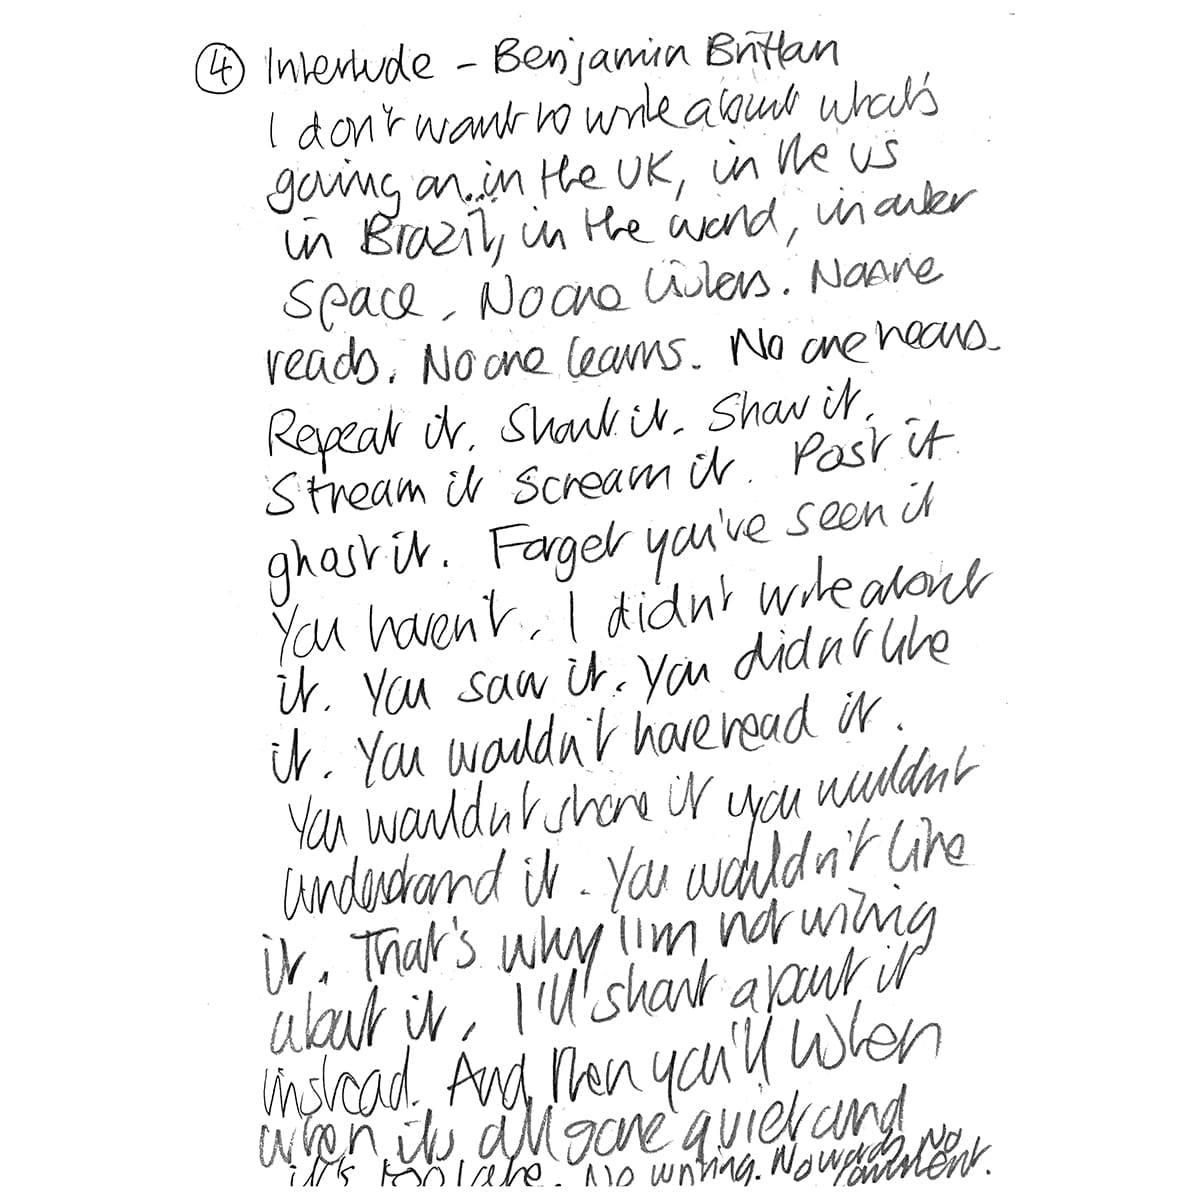 ④ Interlude - Benjamin Brittan
I don't want to write about what's
going on.. in the UK, in the US
in Brazil, in the world, in outer
space. No one listens. No one
reads. No one learns. No one hears.
Repeat it. Shout it. Show it.
Stream it Scream it. Post it
ghost it. Forget you've seen it
You haven't. I didn't write about
it. You saw it. You didn't like
it. You wouldn't have read it.
You wouldn't share it you wouldn't
understand it. You wouldn't like
it. That's why I'm not writing
about it. I'll shout about it
instead. And then you'll listen
when its all gone quiet and
it's too late. No writing. No words. No
comment.